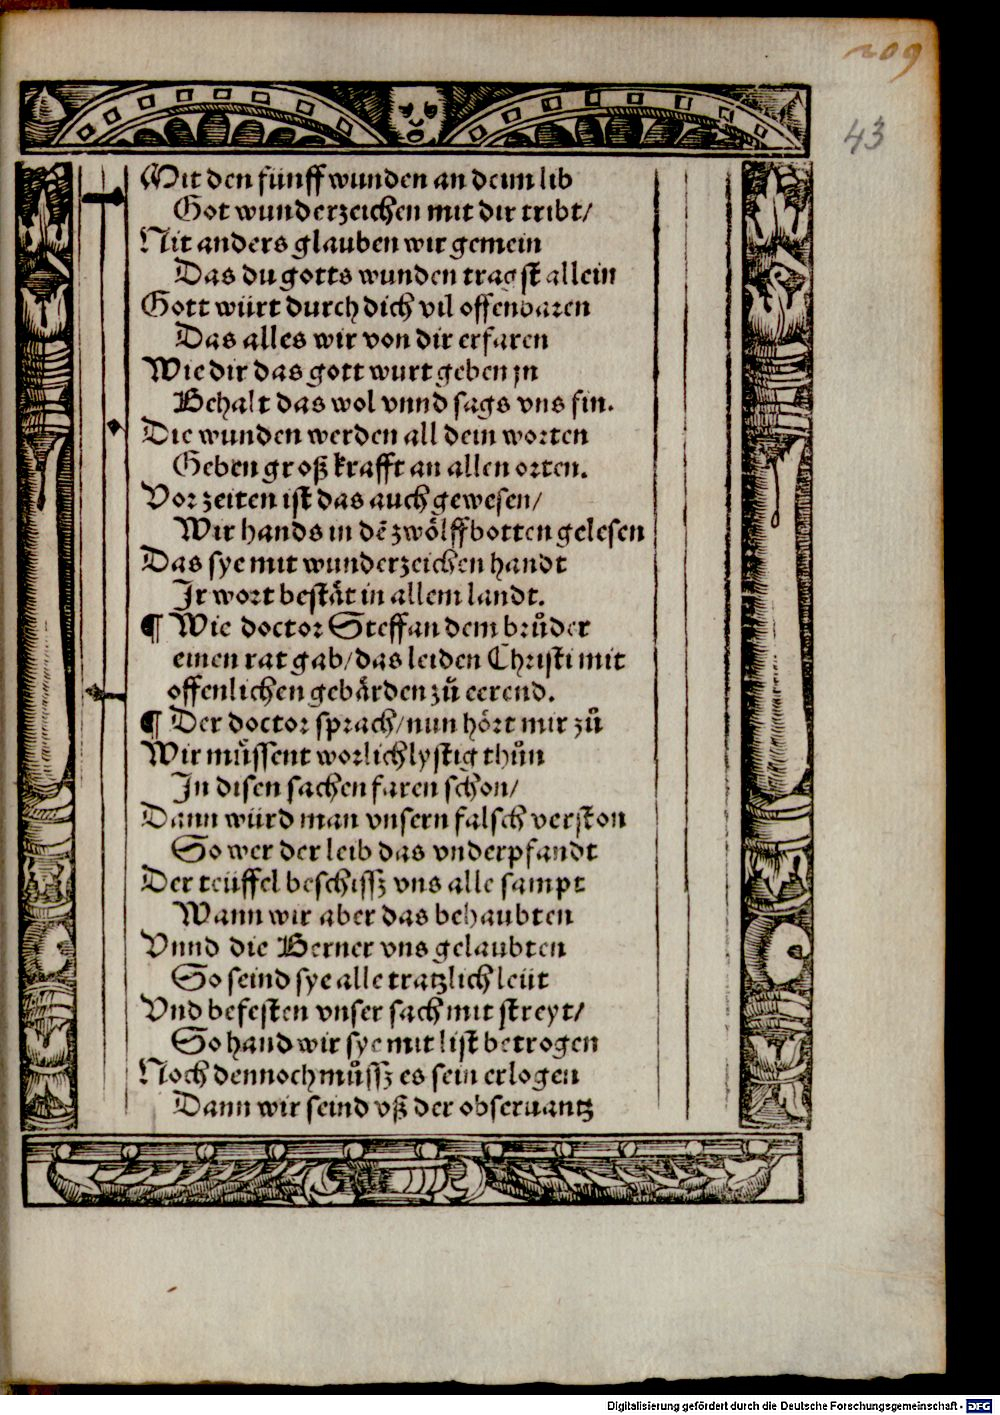 209
43
Mit den fünff wunden an deim lib
Got wunderzeichen mit dir tribt/
Nit anders glauben wir gemein
Das du gotts wunden tragst allein
Gott würt durch dich vil offenbaren
Das alles wir von dir erfaren
Wie dir das gott wurt geben jn
Behalt das wol vnnd sags vns fin.
Die wunden werden all dein worten
Geben groß krafft an allen orten.
Vor zeiten ist das auch gewesen/
Wir hands in dē zwölffbotten gelesen
Das sye mit wunderzeichen handt
Ir wort bestät in allem landt.
¶ Wie doctor Steffan dem brůder
einen rat gab/das leiden Christi mit
offenlichen gebärden zů eerend.
¶ Der doctor sprach/nun hört mir zů
Wir müssent worlich lystig thůn
In disen sachen faren schon/
Dann würd man vnsern falsch verston
So wer der leib das vnderpfandt
Der teüffel beschissz vns alle sampt
Wann wir aber das behaubten
Vnnd die Berner vns gelaubten
So seind sye alle tratzlich leüt
Vnd befesten vnser sach mit streyt/
So hand wir sye mit list betrogen
Noch dennoch můssz es sein erlogen
Dann wir seind vß der obseruantz
Digitalisierung gefördert durch die Deutsche Forschungsgemeinschaft - DFG